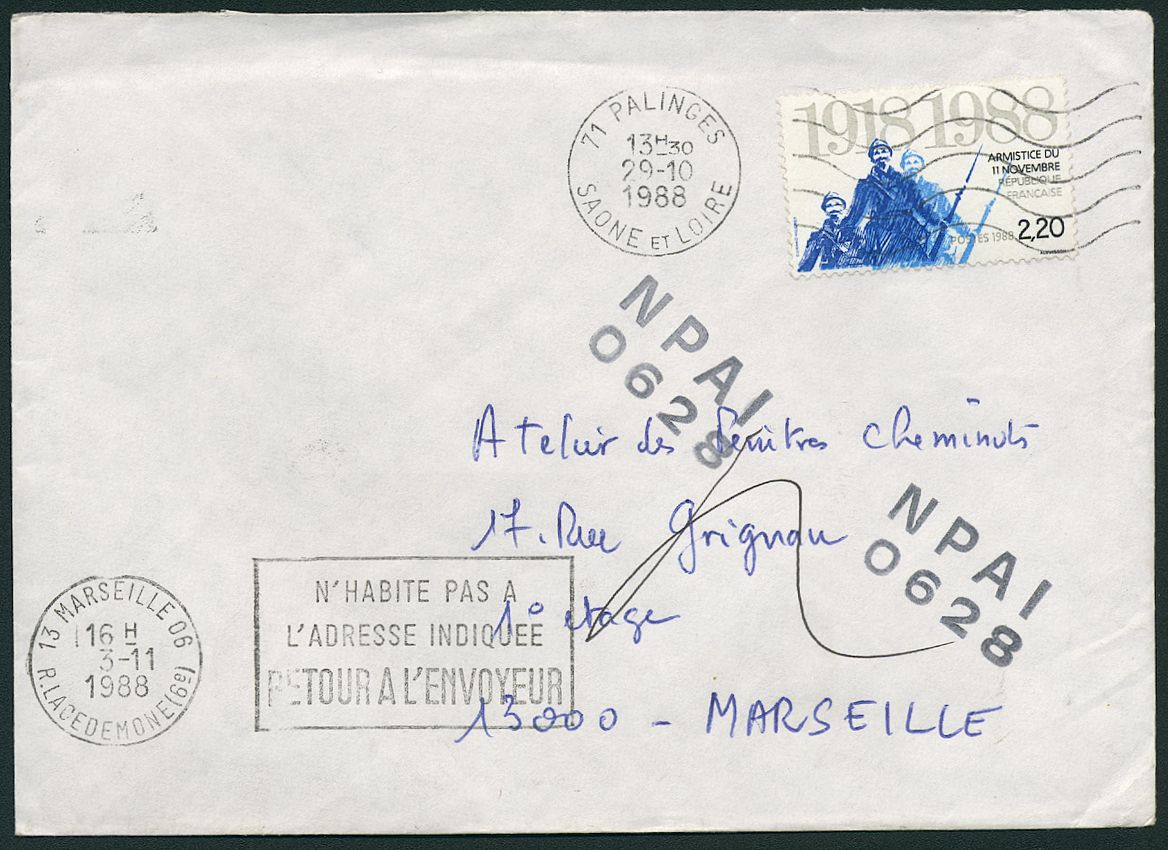 71 PALINGES
13H30
29-10
1988
SAONE ET LOIRE
1918 1988
ARMISTICE DU
11 NOVEMBRE
RÉPUBLIQUE
FRANÇAISE
POSTES 1988 2,20
NPAI
0628
Atelier des Peintres cheminots
17. Rue Grignau
1° etage
13000 - MARSEILLE
NPAI
0628
13 MARSEILLE 06
16 H
3-11
1988
R. LACEDEMONE (6e)
N'HABITE PAS A
L'ADRESSE INDIQUEE
RETOUR A L'ENVOYEUR